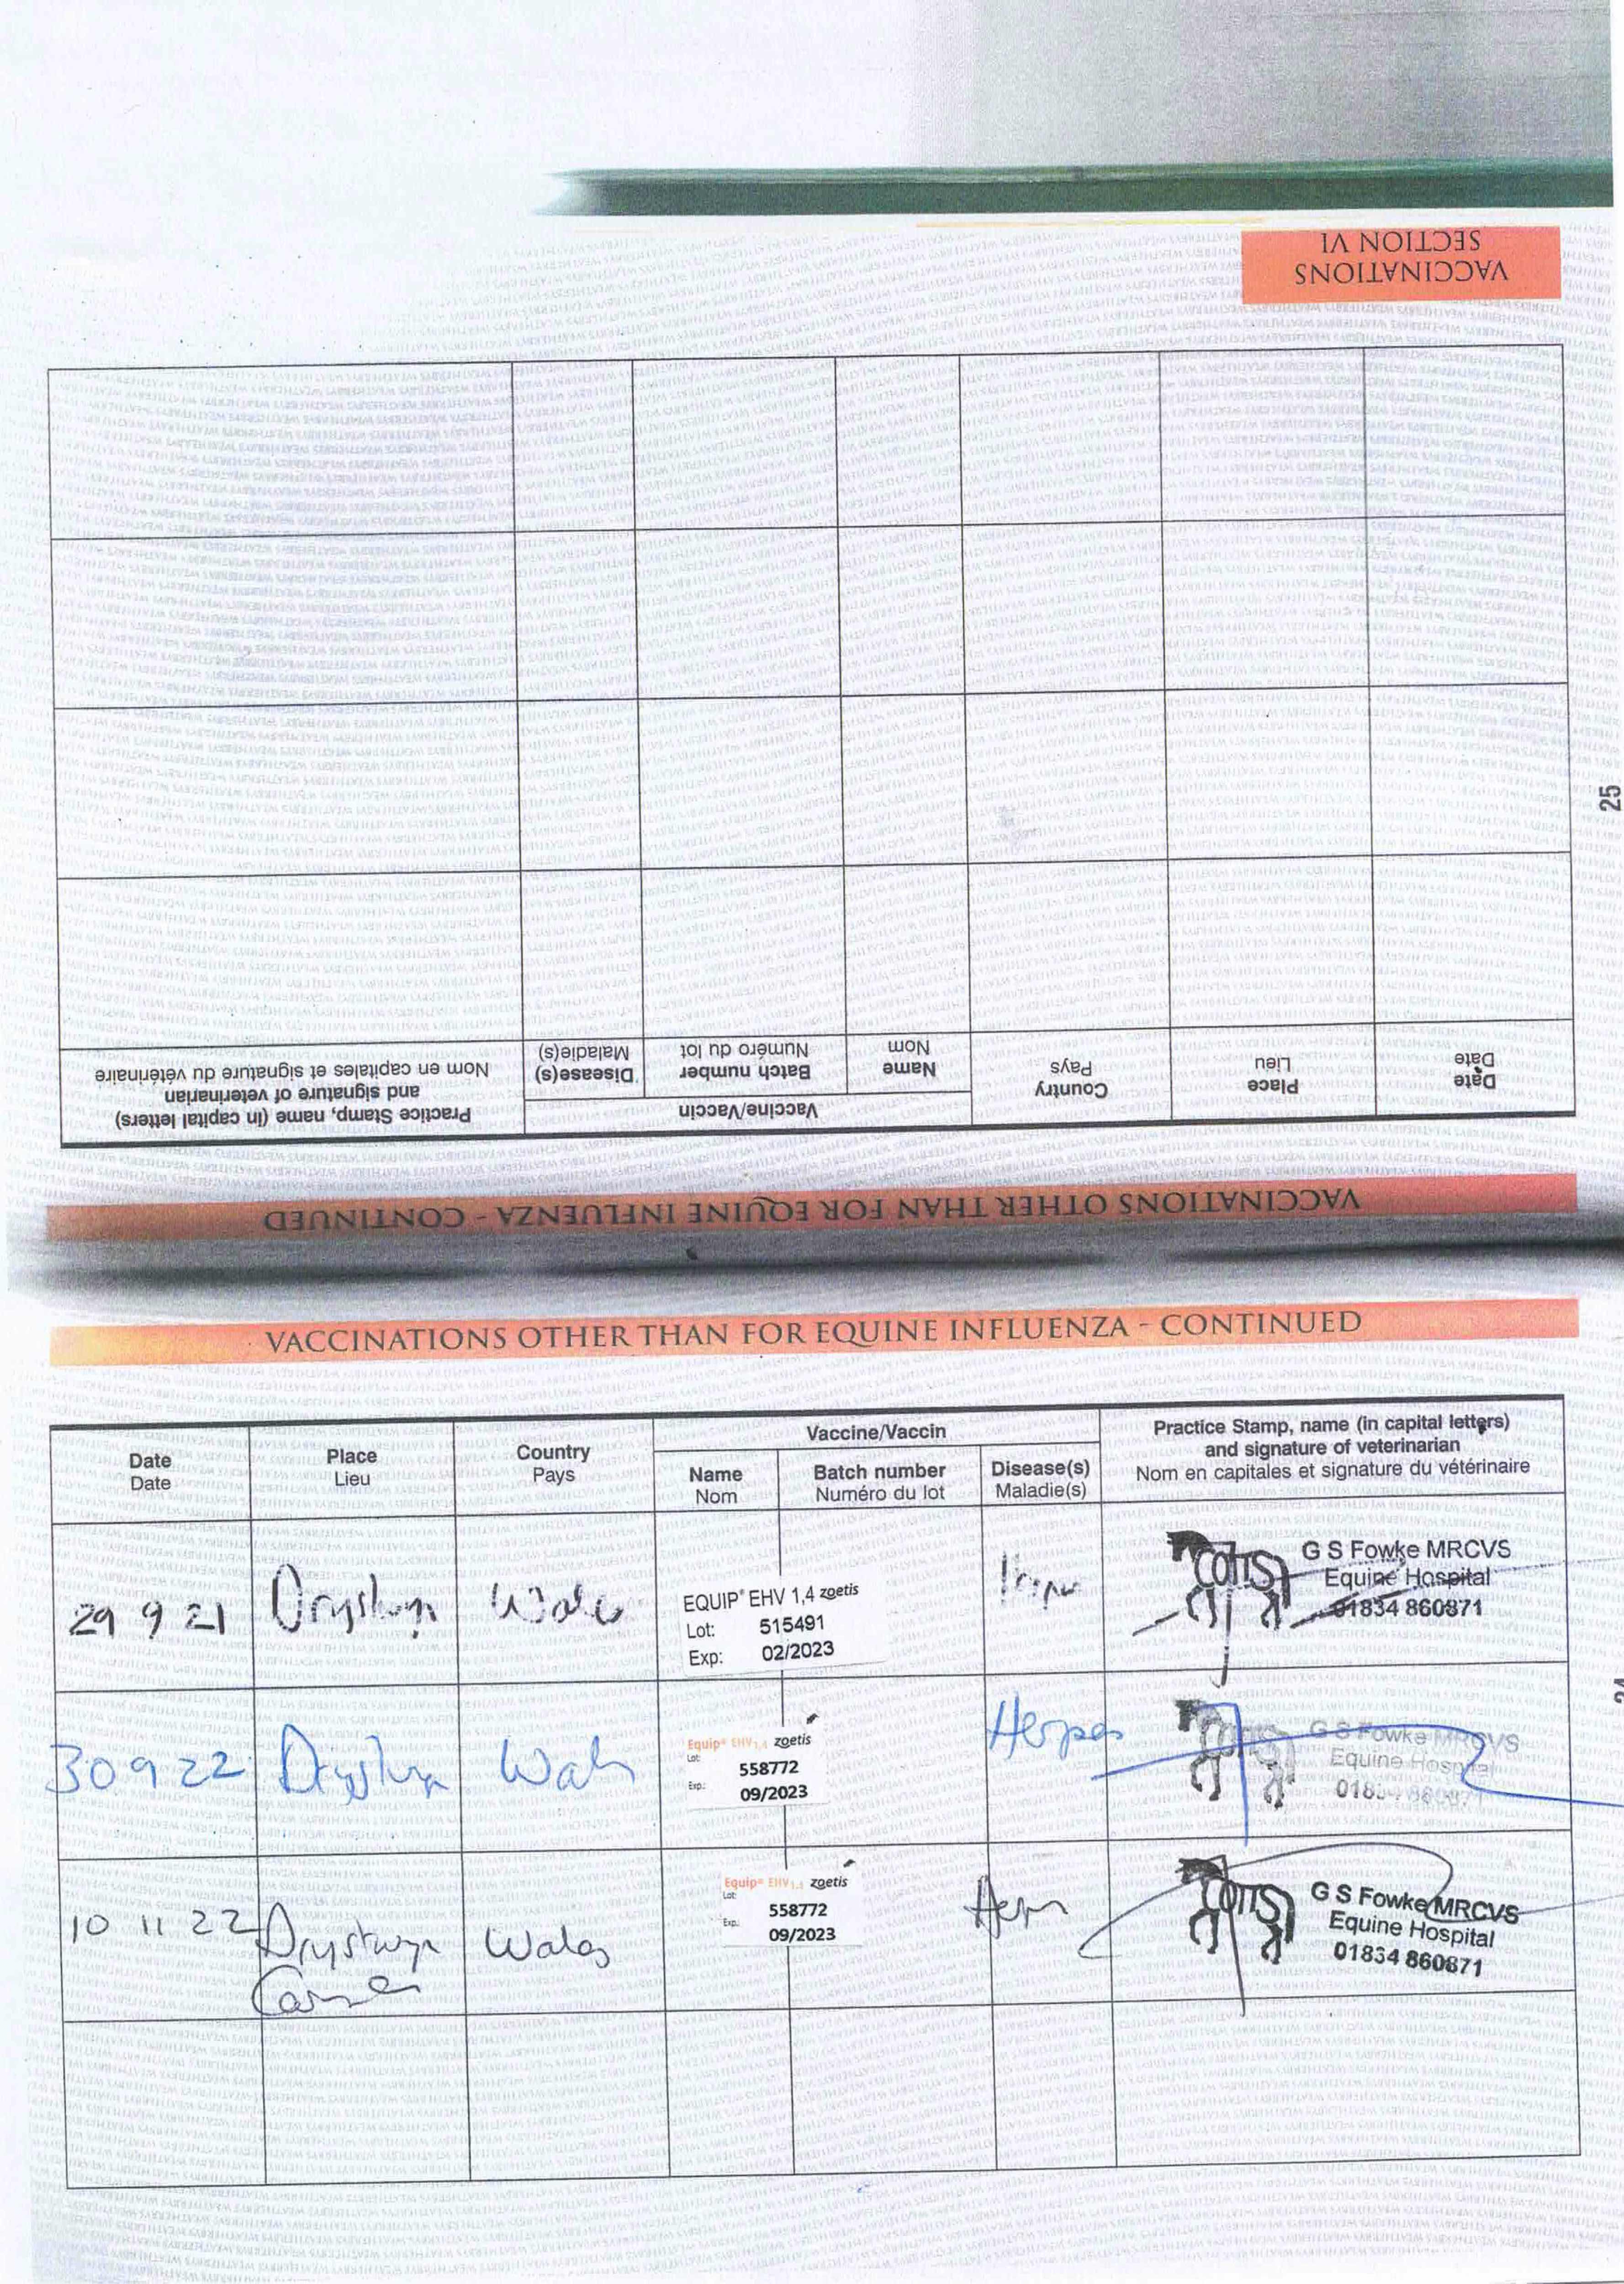 VACCINATIONS
SECTION VI
VACCINATIONS OTHER THAN FOR EQUINE INFLUENZA - CONTINUED
Date
Date
Place
Lieu
Country
Pays
Vaccine/Vaccin
Name
Nom
Batch number
Numéro du lot
Disease(s)
Maladie(s)
Practice Stamp, name (in capital letters)
and signature of veterinarian
Nom en capitales et signature du vétérinaire
25
VACCINATIONS OTHER THAN FOR EQUINE INFLUENZA - CONTINUED
Date
Date
Place
Lieu
Country
Pays
Vaccine/Vaccin
Name
Nom
Batch number
Numéro du lot
Disease(s)
Maladie(s)
Practice Stamp, name (in capital letters)
and signature of veterinarian
Nom en capitales et signature du vétérinaire
29 9 21
EQUIP® EHV 1,4 zoetis
Lot: 515491
Exp: 02/2023
G S Fowke MRCVS
Equine Hospital
01834 860871
30 9 22
Equip® EHV 1,4 zoetis
Lot: 558772
Exp.: 09/2023
Herpes
G S Fowke MRCVS
Equine Hospital
01834 860871
10 11 22
Wales
Equip® EHV 1,4 zoetis
Lot: 558772
Exp.: 09/2023
G S Fowke MRCVS
Equine Hospital
01834 860871